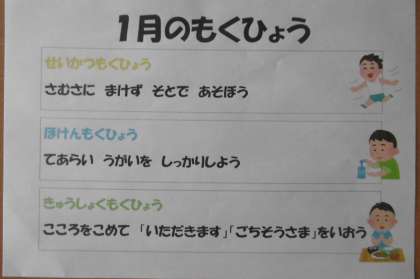 1月のもくひょう
せいかつもくひょう
さむさに まけず そとで あそぼう
ほけんもくひょう
てあらい うがいを しっかりしよう
きゅうしょくもくひょう
こころをこめて 「いただきます」「ごちそうさま」をいおう